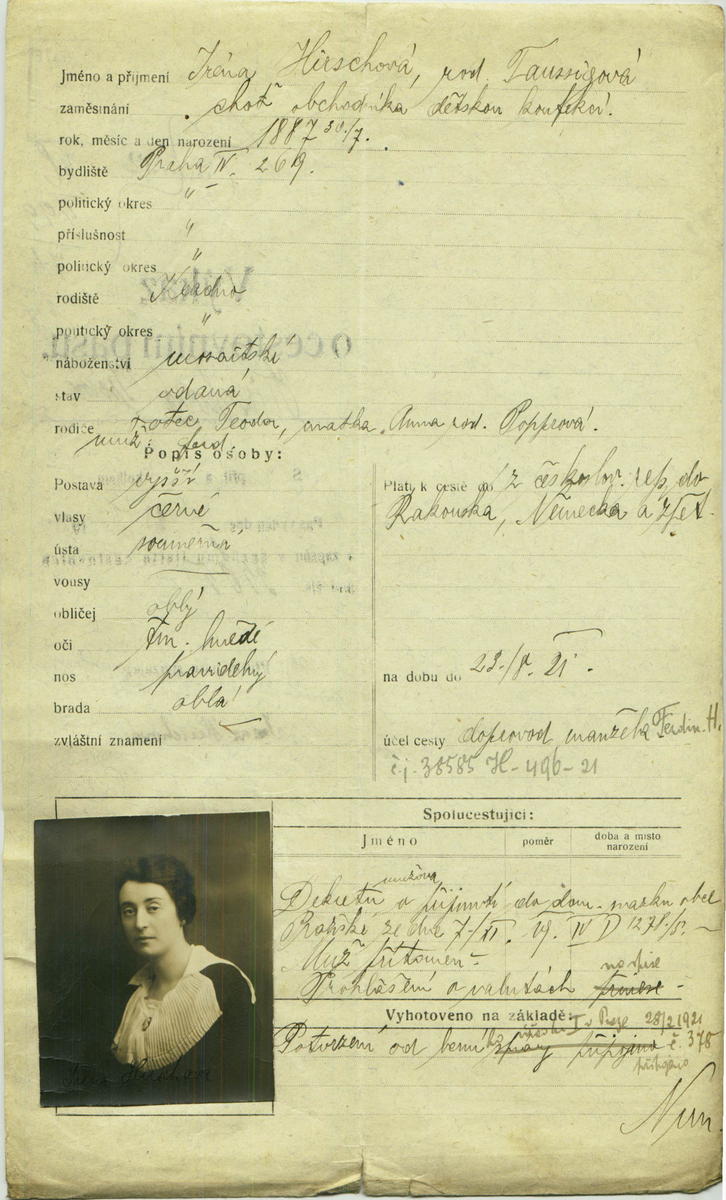 Jméno a příjmení Iréna Hirschová, rod. Taussigová
zaměstnání choť obchodníka dětskou konfekcí.
rok, měsíc a den narození 1887 30./7.
bydliště Praha IV. 269.
politický okres "
příslušnost "
politický okres "
rodiště Kladno
politický okres "
náboženství mosaitské
stav vdaná
rodiče otec Teodor, matka Anna rod. Popprová.
muž: ferd.
Popis osoby:
Postava vyšší
vlasy černé
ústa souměrná
vousy —
obličej oblý
oči tm. hnědé
nos pravidelný
brada oblá
zvláštní znamení
Platí k cestě do z českoslov. rep. do
Rakouska, Německa a zpět.
na dobu do 23./8. 21.
účel cesty doprovod manžela Ferdin. H.
č.j. 38585 H-496-21
Spolucestující:
Jméno poměr doba a místo narození
mužova
Dekretu o přijmutí do dom. svazku obce
Pražské ze dne 7./XI. 19. IV D 1278/8. —
Muž přítomen —
Prohlášení o valutách
Vyhotoveno na základě:
v Praze 28/2 1921
Potvrzení od berní správy č. 378
Iréna Hirschova
Num.